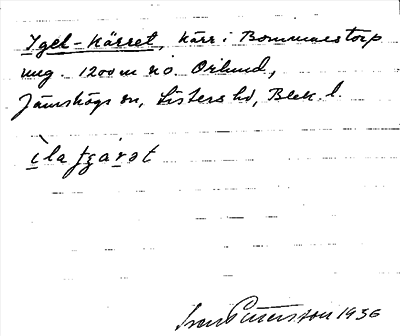 Igel-kärret, kärr i Bommerstorp
ung. 1200 m nö. Orlund,
Jämshögs sn, Listers hd, Blek. l.
ìla ʃɛarət
Petersson 1936